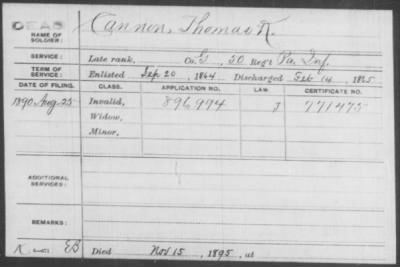 DEAD
NAME OF SOLDIER: Cannon, Thomas K.
SERVICE: Late rank, Co. G, 50 Reg't Pa. Inf.
TERM OF SERVICE: Enlisted Sep 20, 1864 Discharged Feb 14, 1865
DATE OF FILING. CLASS. APPLICATION NO. LAW. CERTIFICATE NO.
1890 Aug 25 Invalid, 896,994 J 771475
Widow,
Minor,
ADDITIONAL SERVICES:
REMARKS:
K. EB Died Nov 15, 1895, at